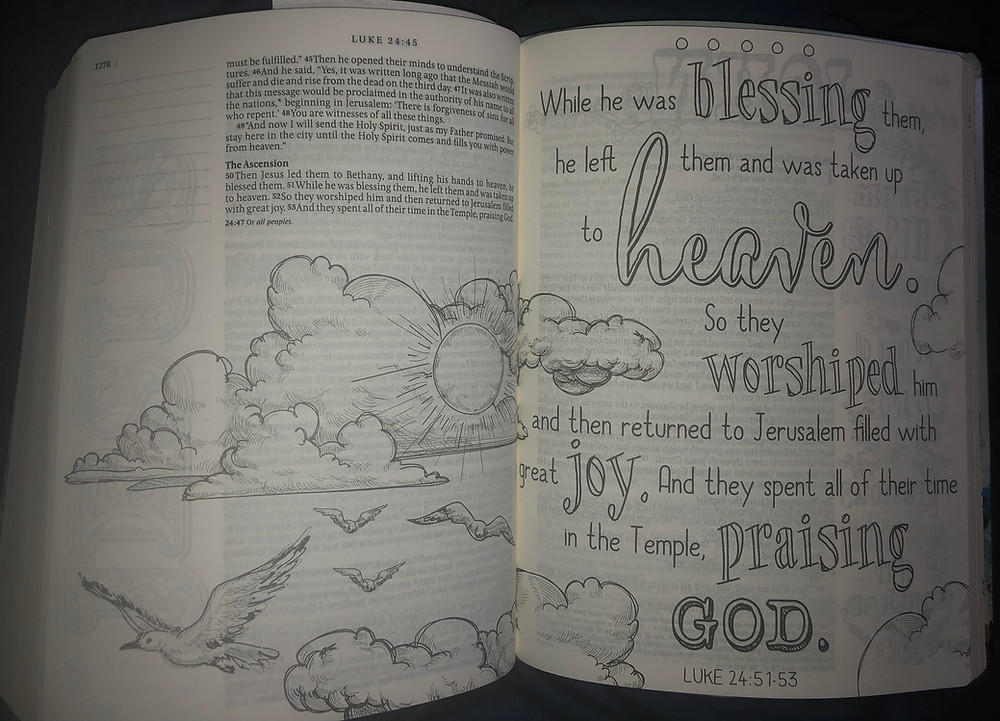 LUKE 24:45
1276
must be fulfilled.” 45Then he opened their minds to understand the Scrip-
tures. 46And he said, “Yes, it was written long ago that the Messiah would
suffer and die and rise from the dead on the third day. 47It was also written
that this message would be proclaimed in the authority of his name to all
the nations,* beginning in Jerusalem: ‘There is forgiveness of sins for all
who repent.’ 48You are witnesses of all these things.
49“And now I will send the Holy Spirit, just as my Father promised. But
stay here in the city until the Holy Spirit comes and fills you with power
from heaven.”
The Ascension
50Then Jesus led them to Bethany, and lifting his hands to heaven, he
blessed them. 51While he was blessing them, he left them and was taken up
to heaven. 52So they worshiped him and then returned to Jerusalem filled
with great joy. 53And they spent all of their time in the Temple, praising God.
24:47 Or all peoples.
While he was blessing them,
he left them and was taken up
to heaven.
So they
worshiped him
and then returned to Jerusalem filled with
great joy. And they spent all of their time
in the Temple, praising
GOD.
LUKE 24:51-53